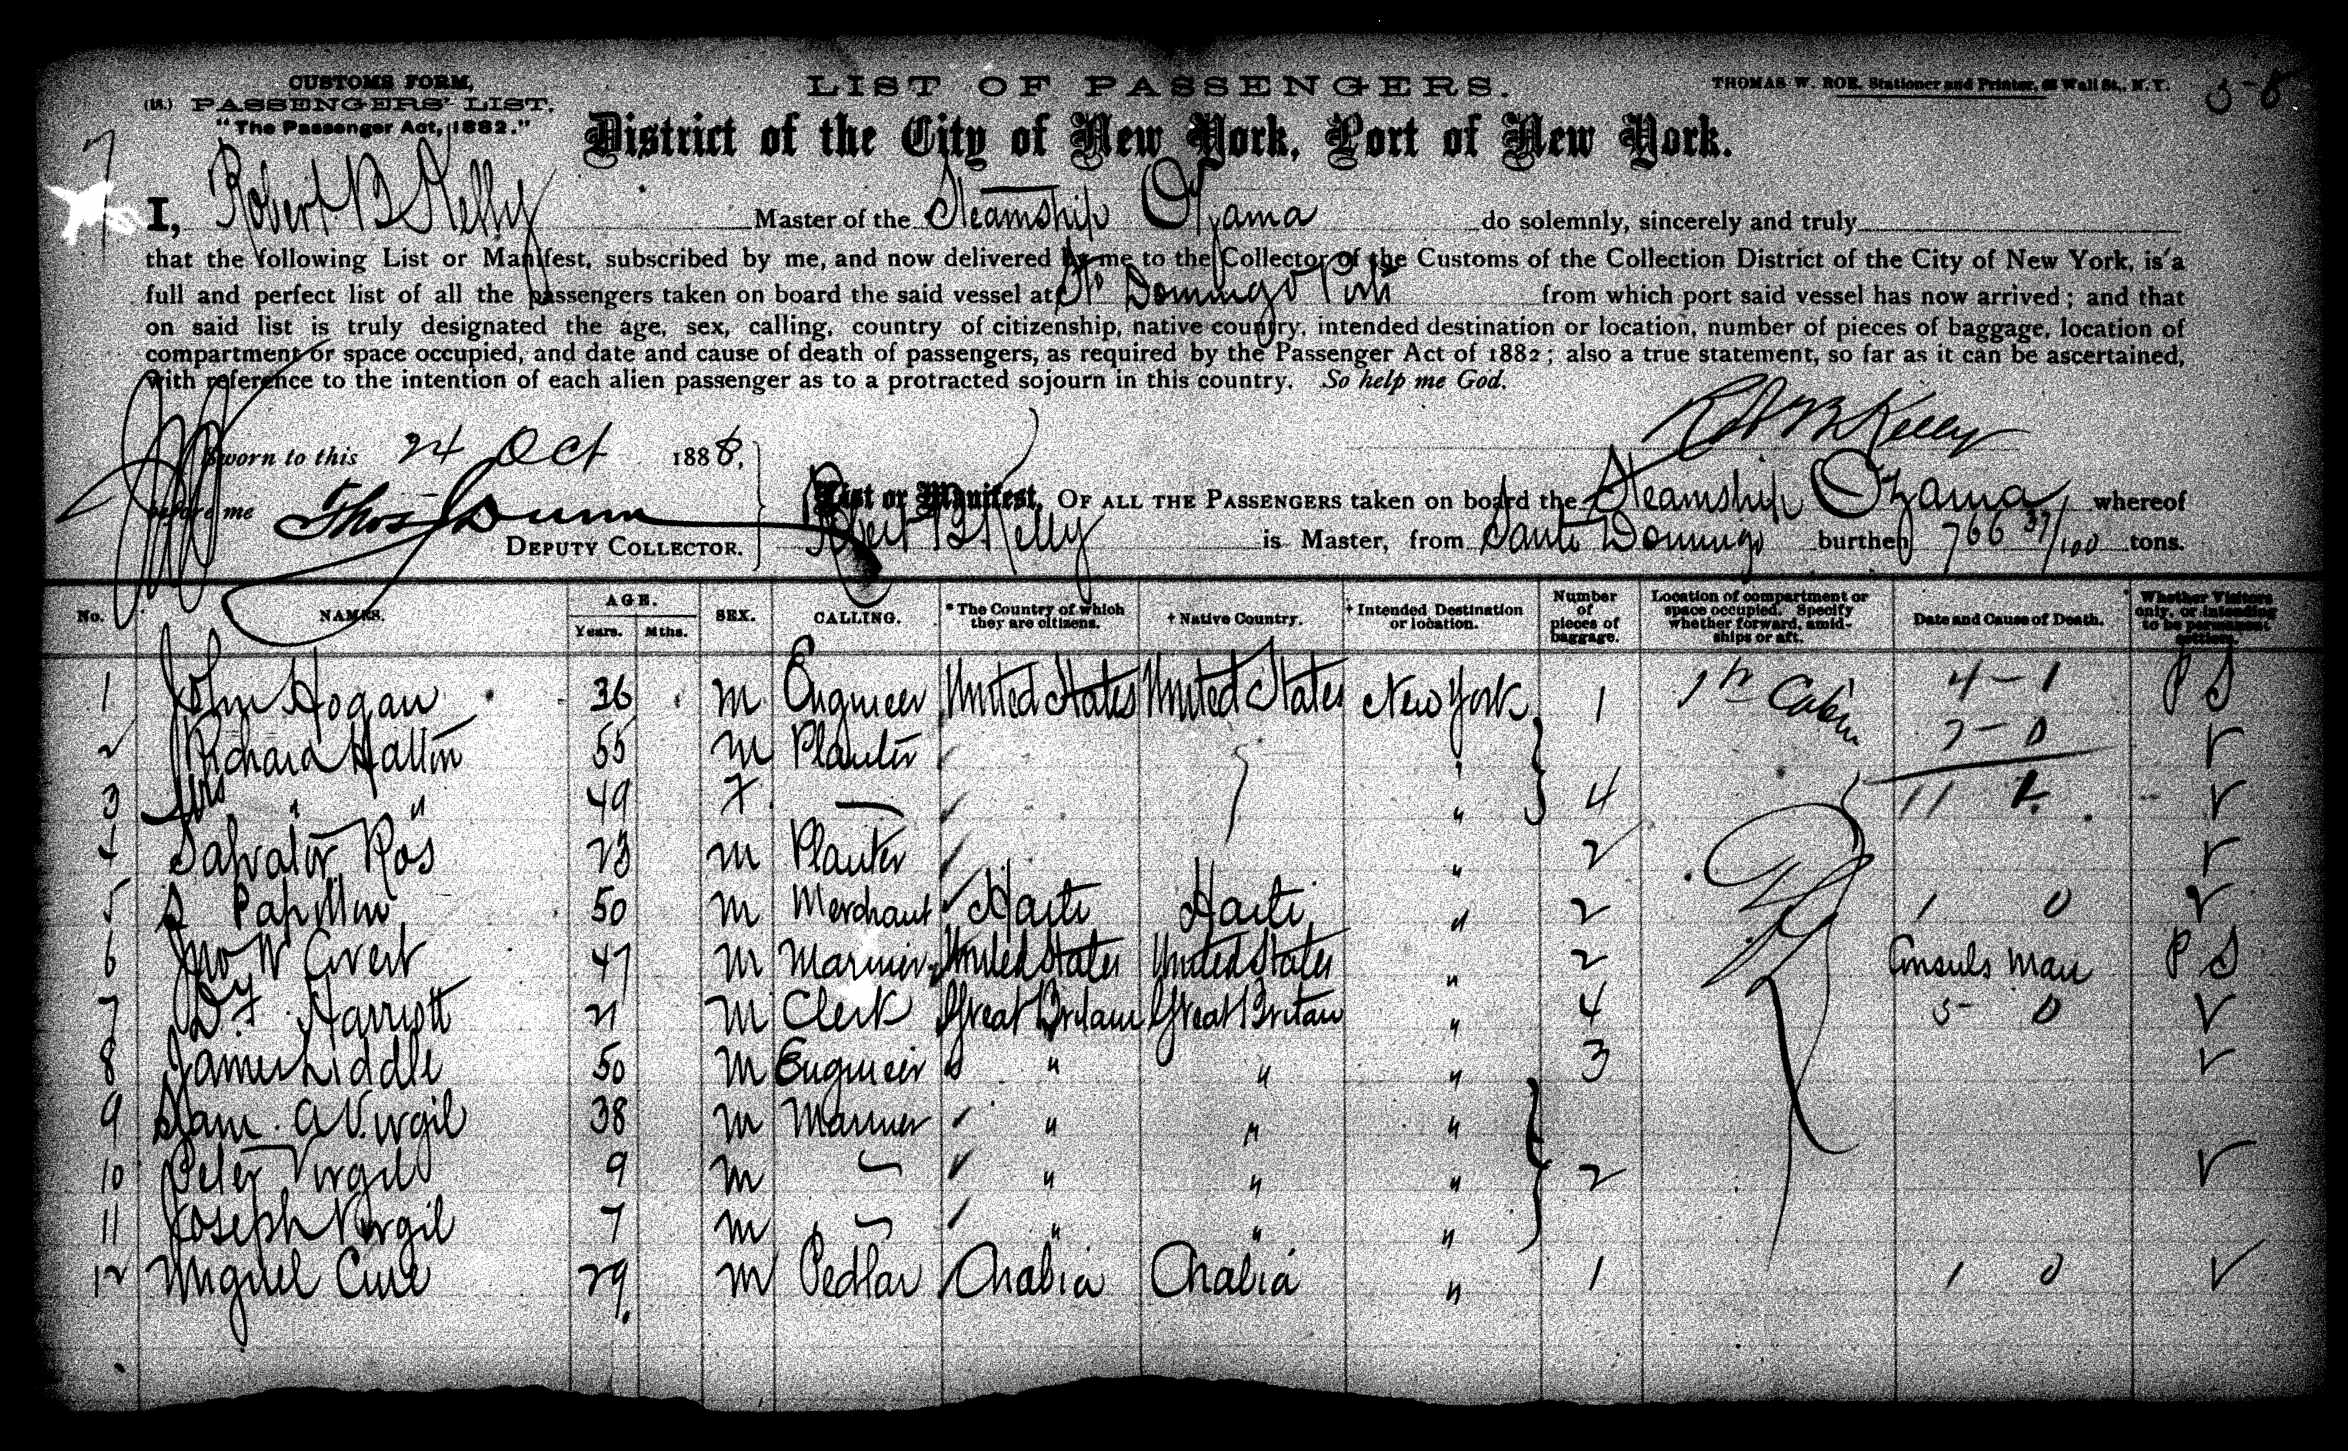 CUSTOMS FORM,
PASSENGERS' LIST.
"The Passenger Act, 1882."
LIST OF PASSENGERS.
THOMAS W. ROE, Stationer and Printer, Wall St., N.Y.
5-8
District of the City of New York, Port of New York.
I, Robert B Kelly Master of the Steamship Ozama do solemnly, sincerely and truly
that the following List or Manifest, subscribed by me, and now delivered by me to the Collector of the Customs of the Collection District of the City of New York, is a
full and perfect list of all the passengers taken on board the said vessel at Sto Domingo Port from which port said vessel has now arrived; and that
on said list is truly designated the age, sex, calling, country of citizenship, native country, intended destination or location, number of pieces of baggage, location of
compartment or space occupied, and date and cause of death of passengers, as required by the Passenger Act of 1882; also a true statement, so far as it can be ascertained,
with reference to the intention of each alien passenger as to a protracted sojourn in this country. So help me God.
Kelly
Sworn to this 24 Oct 1888,
before me Thos Dunn
DEPUTY COLLECTOR.
List or Manifest, OF ALL THE PASSENGERS taken on board the Steamship Ozama whereof
Robert B Kelly is Master, from Santo Domingo burthen 766 37/100 tons.
No. NAMES. AGE. Years. Mths. SEX. CALLING. *The Country of which they are citizens. †Native Country. †Intended Destination or location. Number of pieces of baggage. Location of compartment or space occupied. Specify whether forward, amidships or aft. Date and Cause of Death. Whether Visitors only, or intending to be permanent settlers.
1 John Hogan 36 M Engineer United States United States New York 1 1st Cabin 4-1 P S
2 Richard Hatton 55 M Planter " 7-0 V
3 Mrs " " 49 F — " 4 11 V
4 Salvator Ros 23 M Planter " 2 V
5 S Papillon 50 M Merchant Haiti Haiti " 2 1 0 V
6 Jno W Evert 47 M Mariner United States United States " 2 Consuls Man P S
7 D. F. Harriott 21 M Clerk Great Britain Great Britain " 4 5-0 V
8 James Liddle 50 M Engineer " " " 3 V
9 Sam. A Virgil 38 M Mariner " " "
10 Peter Virgil 9 M — " " " 2 V
11 Joseph Virgil 7 M — " " "
12 Miguel Cure 29 M Pedlar Arabia Arabia " 1 1 0 V